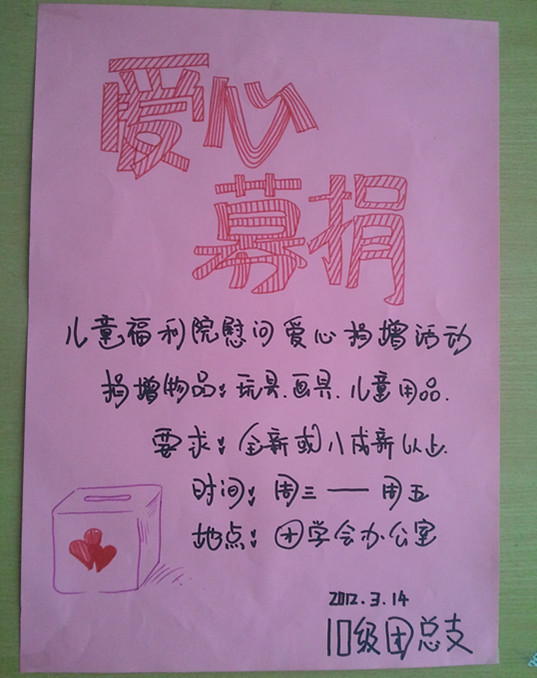 爱心
募捐
儿童福利院慰问爱心捐增活动
捐增物品：玩具.画具.儿童用品.
要求：全新或八成新以上.
时间：周三——周五
地点：团学会办公室
2012.3.14
10级团总支